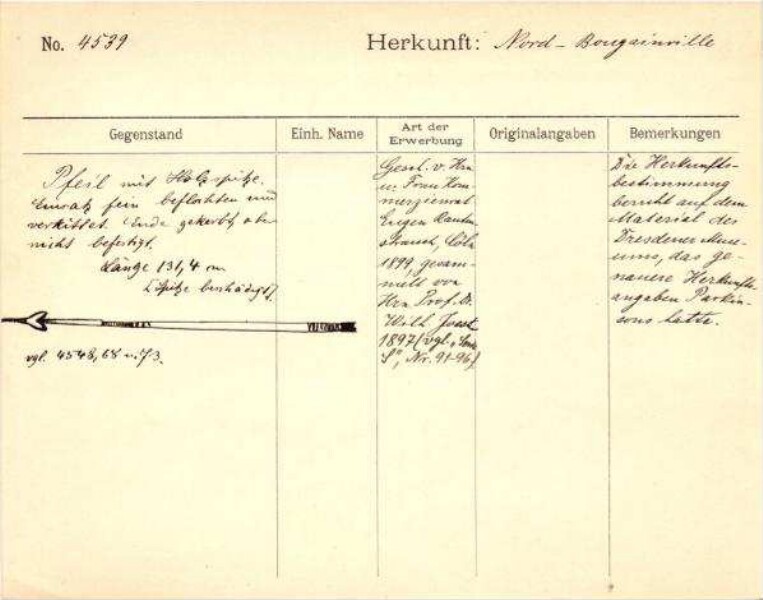 No. 4539 Herkunft: Nord-Bougainville
Gegenstand
Einh. Name
Art der
Erwerbung
Originalangaben
Bemerkungen
Pfeil mit Holzspitze.
Einsatz fein beflochten und
verkittet. Ende gekerbt, aber
nicht befestigt.
Länge 131,4 cm
(Spitze beschädigt)
vgl. 4548, 68 u. 73.
Gesch. v. Hrn
u. Frau Kom-
merzienrat
Eugen Rauten-
strauch, Cöln
1899, gesam-
melt von
Hrn Prof. Dr.
Wilh. Joest
1897 (vgl.
S", Nr. 91-96).
Die Herkunfts-
bestimmung
beruht auf dem
Material des
Dresdener Muse-
ums, das ge-
nauere Herkunfts-
angaben Parkin-
sons hatte.